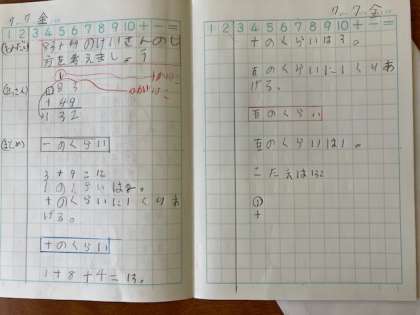 7.7 金
1 2 3 4 5 6 7 8 9 10 + - =
83+49のけいさんのし
方を考えましょう。
83
+ 49
132
一のくらい
3+9=12
1のくらいは2。
十のくらいに1くりあ
げる。
十のくらい
1+8+4=13。
7.7.金
1 2 3 4 5 6 7 8 9 10 + - =
十のくらいは3。
百のくらいに1くりあ
げる。
百のくらい
百のくらいは1。
こたえは132